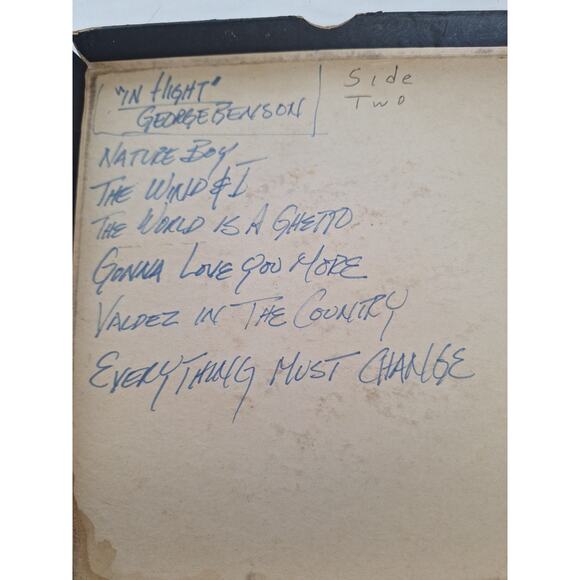 "IN flIGHT"
GEORGE BENSON
Side
Two
NATURE BOY
THE WIND & I
THE WORLD IS A GHETTO
GONNA LOVE YOU MORE
VALDEZ IN THE COUNTRY
EVERYTHING MUST CHANGE